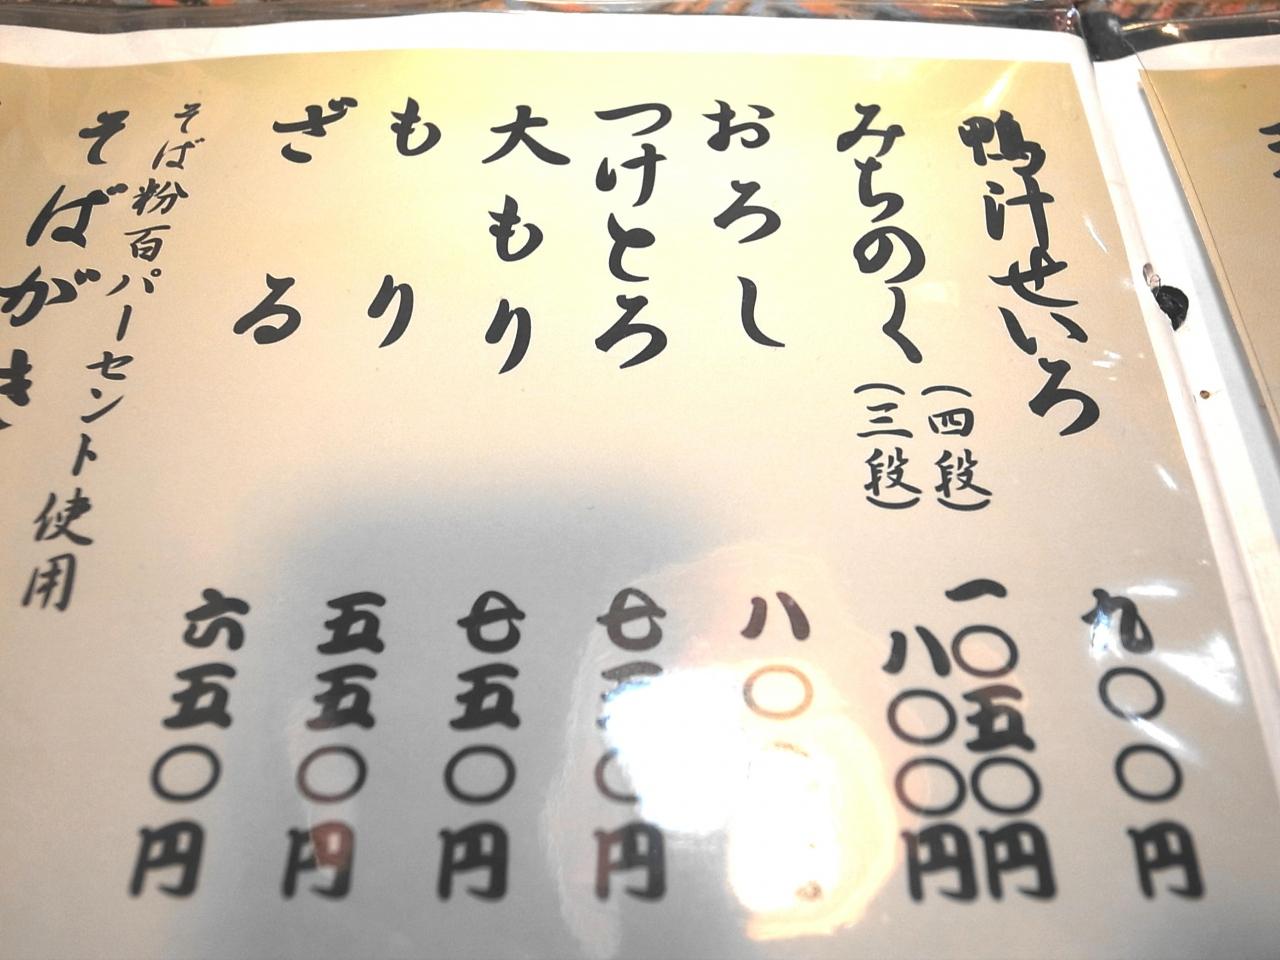 鴨汁せいろ
九〇〇円
みちのく
(四段)
一〇五〇円
(三段)
八〇〇円
おろし
八〇
つけとろ
七
〇円
大もり
七五〇円
もり
五五〇円
ざる
六五〇円
そば粉百パーセント使用
そばがき